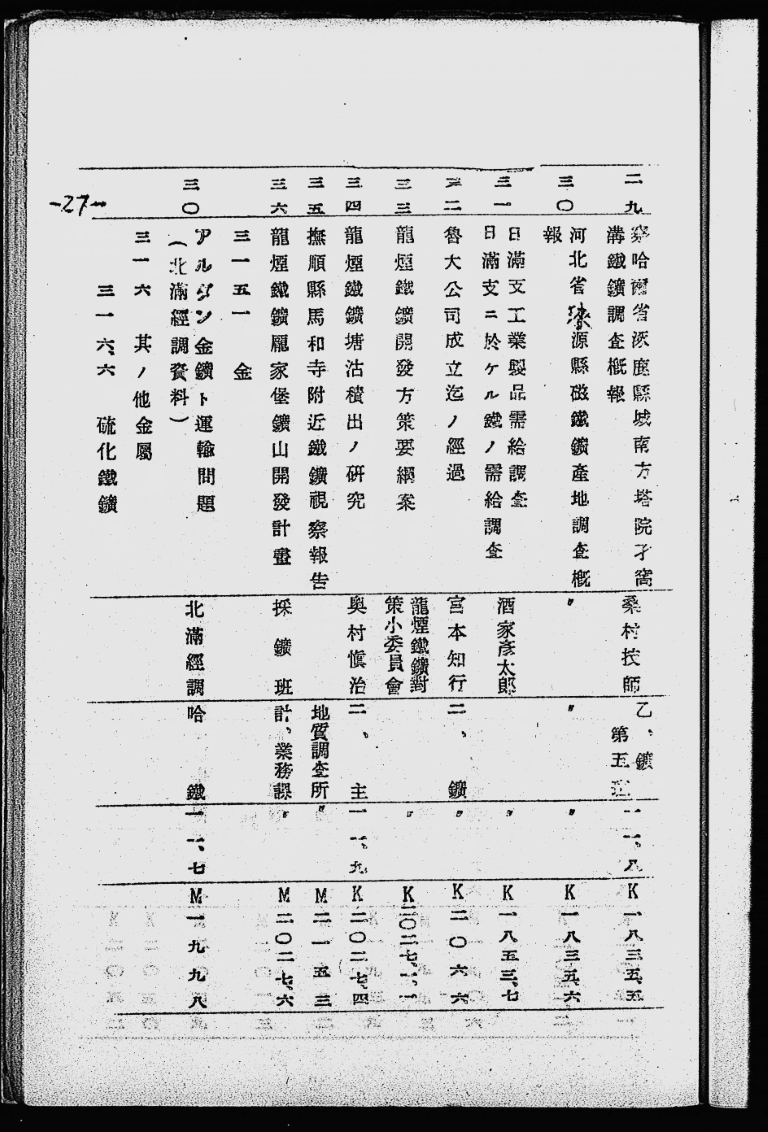 二九
察哈爾省涿鹿縣城南方塔院孑窩
溝鐵鑛調査槪報
桑村技師
乙、鑛
第五
一一、八
K一八三五、五
三〇
河北省淶源縣磁鐵鑛產地調査槪
報
〃
〃
〃
K一八三五、六
三一
日滿支工業製品需給調査
日滿支ニ於ケル鐵ノ需給調査
酒家彥太郎
〃
K一八五三、七
三二
魯大公司成立迄ノ經過
宮本知行
二、鑛
〃
K二〇六六
三三
龍煙鐵鑛開發方策要綱案
龍煙鐵鑛對
策小委員會
〃
K二〇二七、一
三四
龍煙鐵鑛塘沽積出ノ硏究
奥村愼治
二、主
一一、九
K二〇二七、四
三五
撫順縣馬和寺附近鐵鑛視察報告
地質調査所
〃
M二一五三
三六
龍煙鐵鑛龐家堡鑛山開發計畫
採鑛班
計、業務課
〃
M二〇二七、六
三一五一 金
三〇
アルダン金鑛ト運輸問題
(北滿經調資料)
北滿經調
哈鐵
一一、七
M一九九八
三一六 其ノ他金屬
三一六、六 硫化鐵鑛
-27-